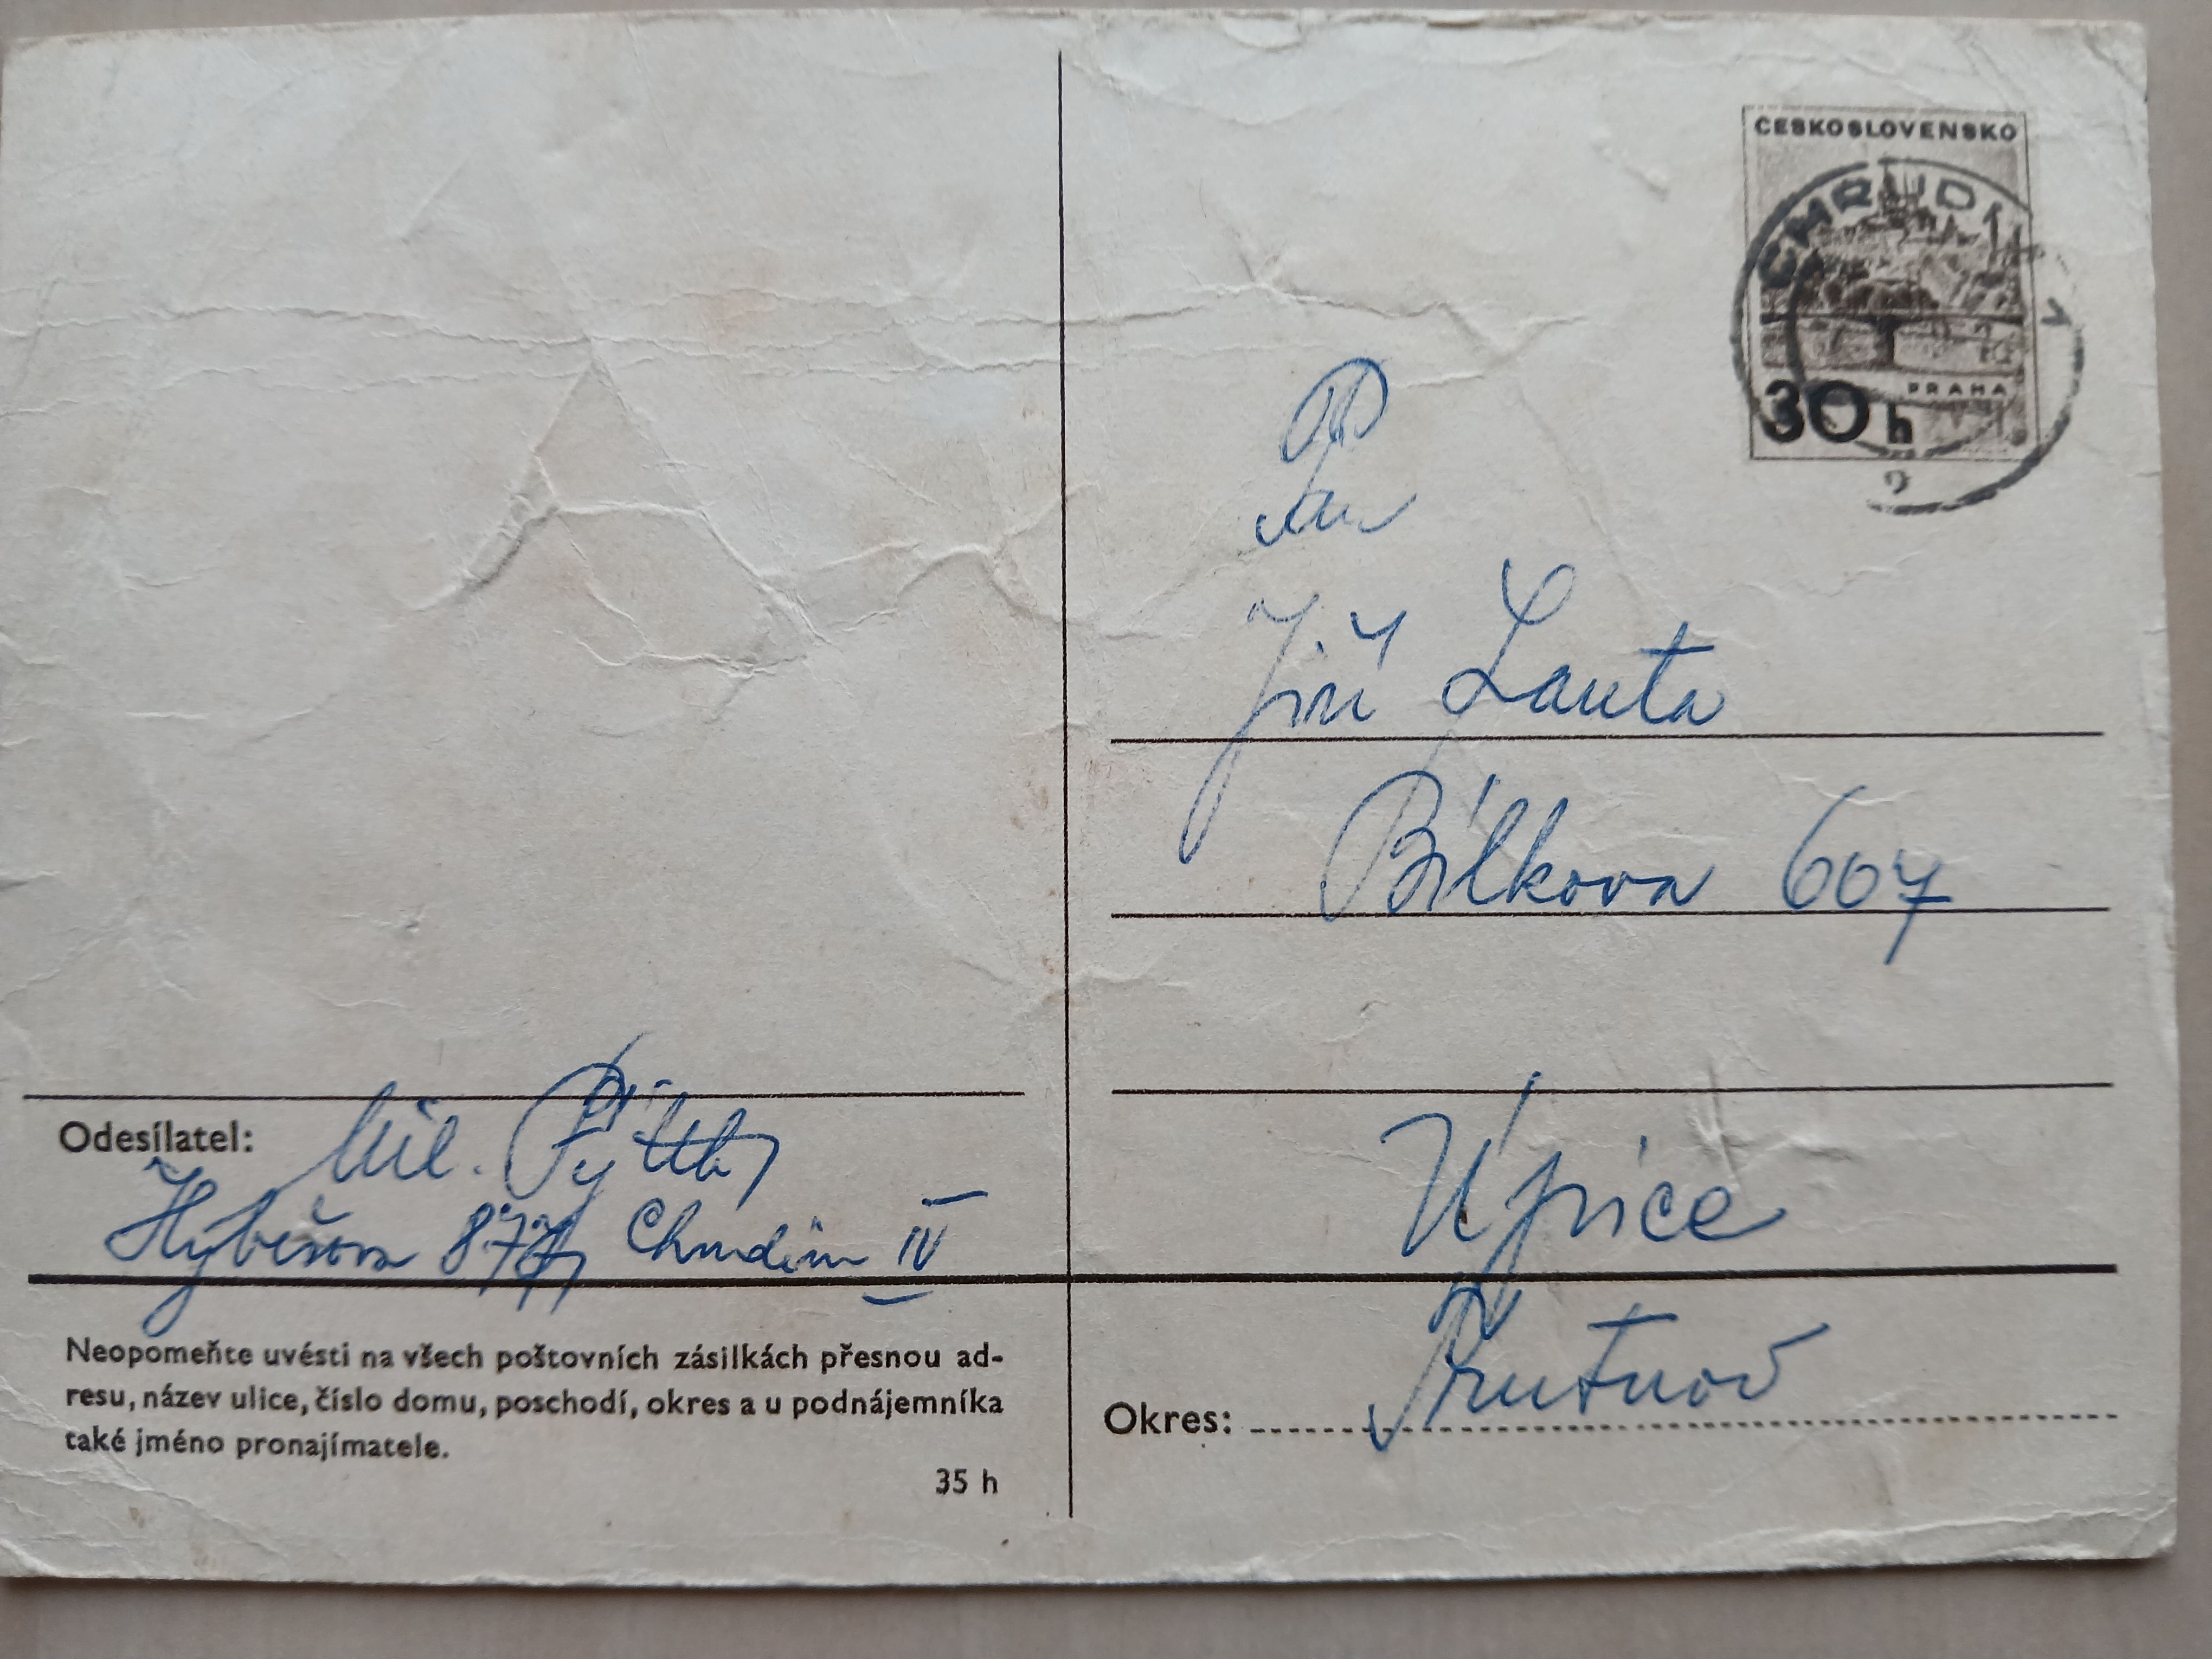 ČESKOSLOVENSKO
CHRUDIM
PRAHA
30 h
Pan
Jiří Lauta
Bílkova 607
Úpice
Okres: Trutnov
Odesílatel: Mil.
Hybešova Chrudim IV
Neopomeňte uvésti na všech poštovních zásilkách přesnou ad-
resu, název ulice, číslo domu, poschodí, okres a u podnájemníka
také jméno pronajímatele.
35 h